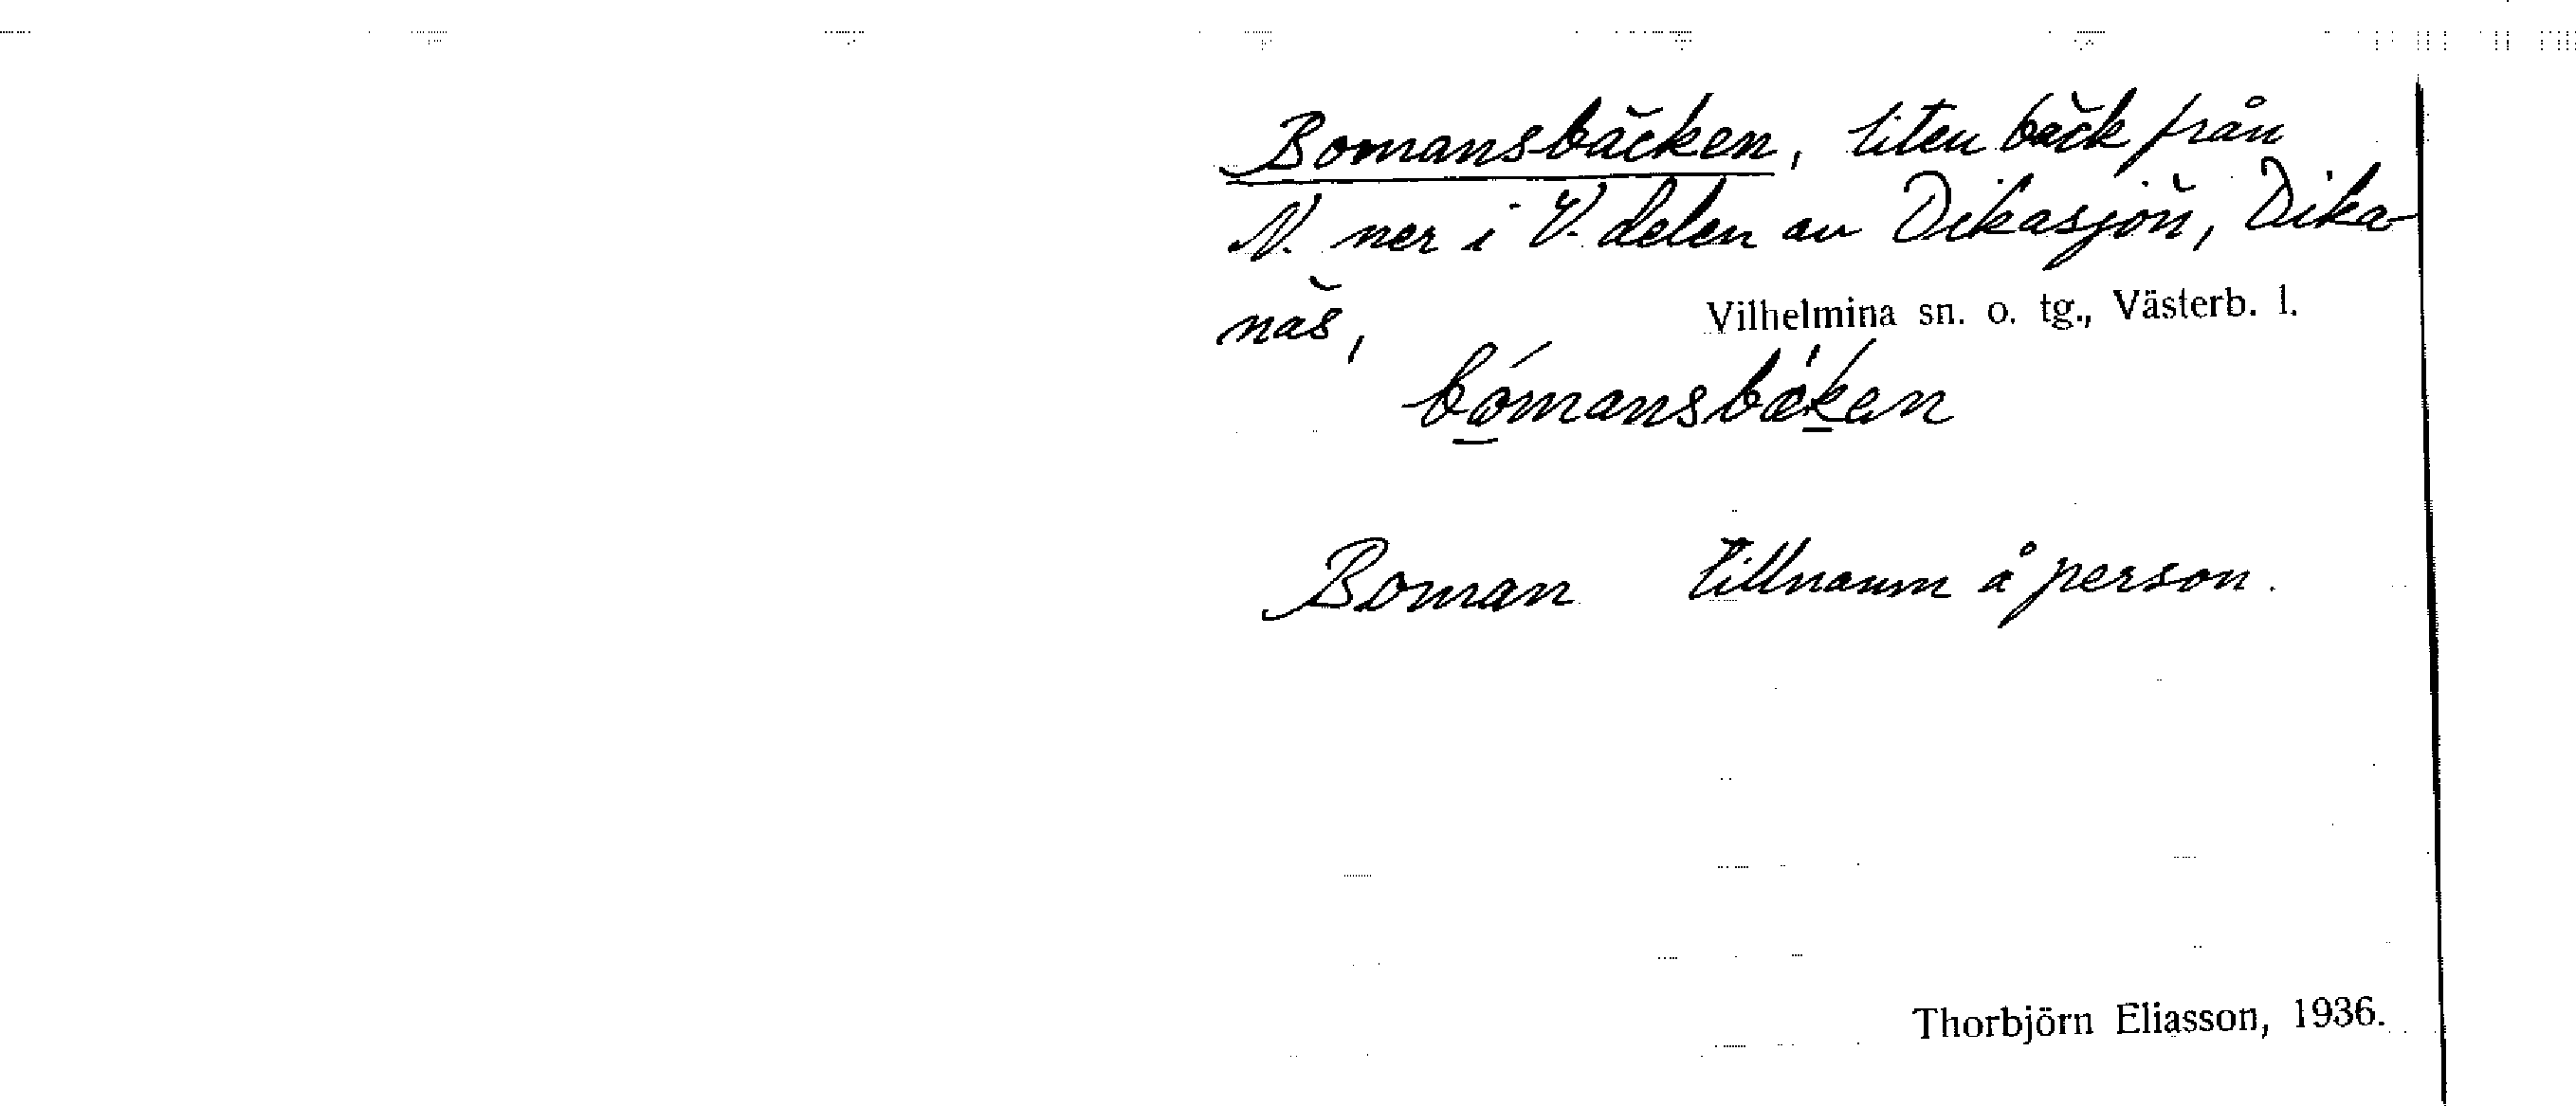 Bomansbäcken, liten bäck från
N. ner i V. delen av Dikasjön, Dika-
näs, Vilhelmina sn. o. tg., Västerb. l.
bo̲mansbæk̲en
Boman tillnamn å person.
Thorbjörn Eliasson, 1936.